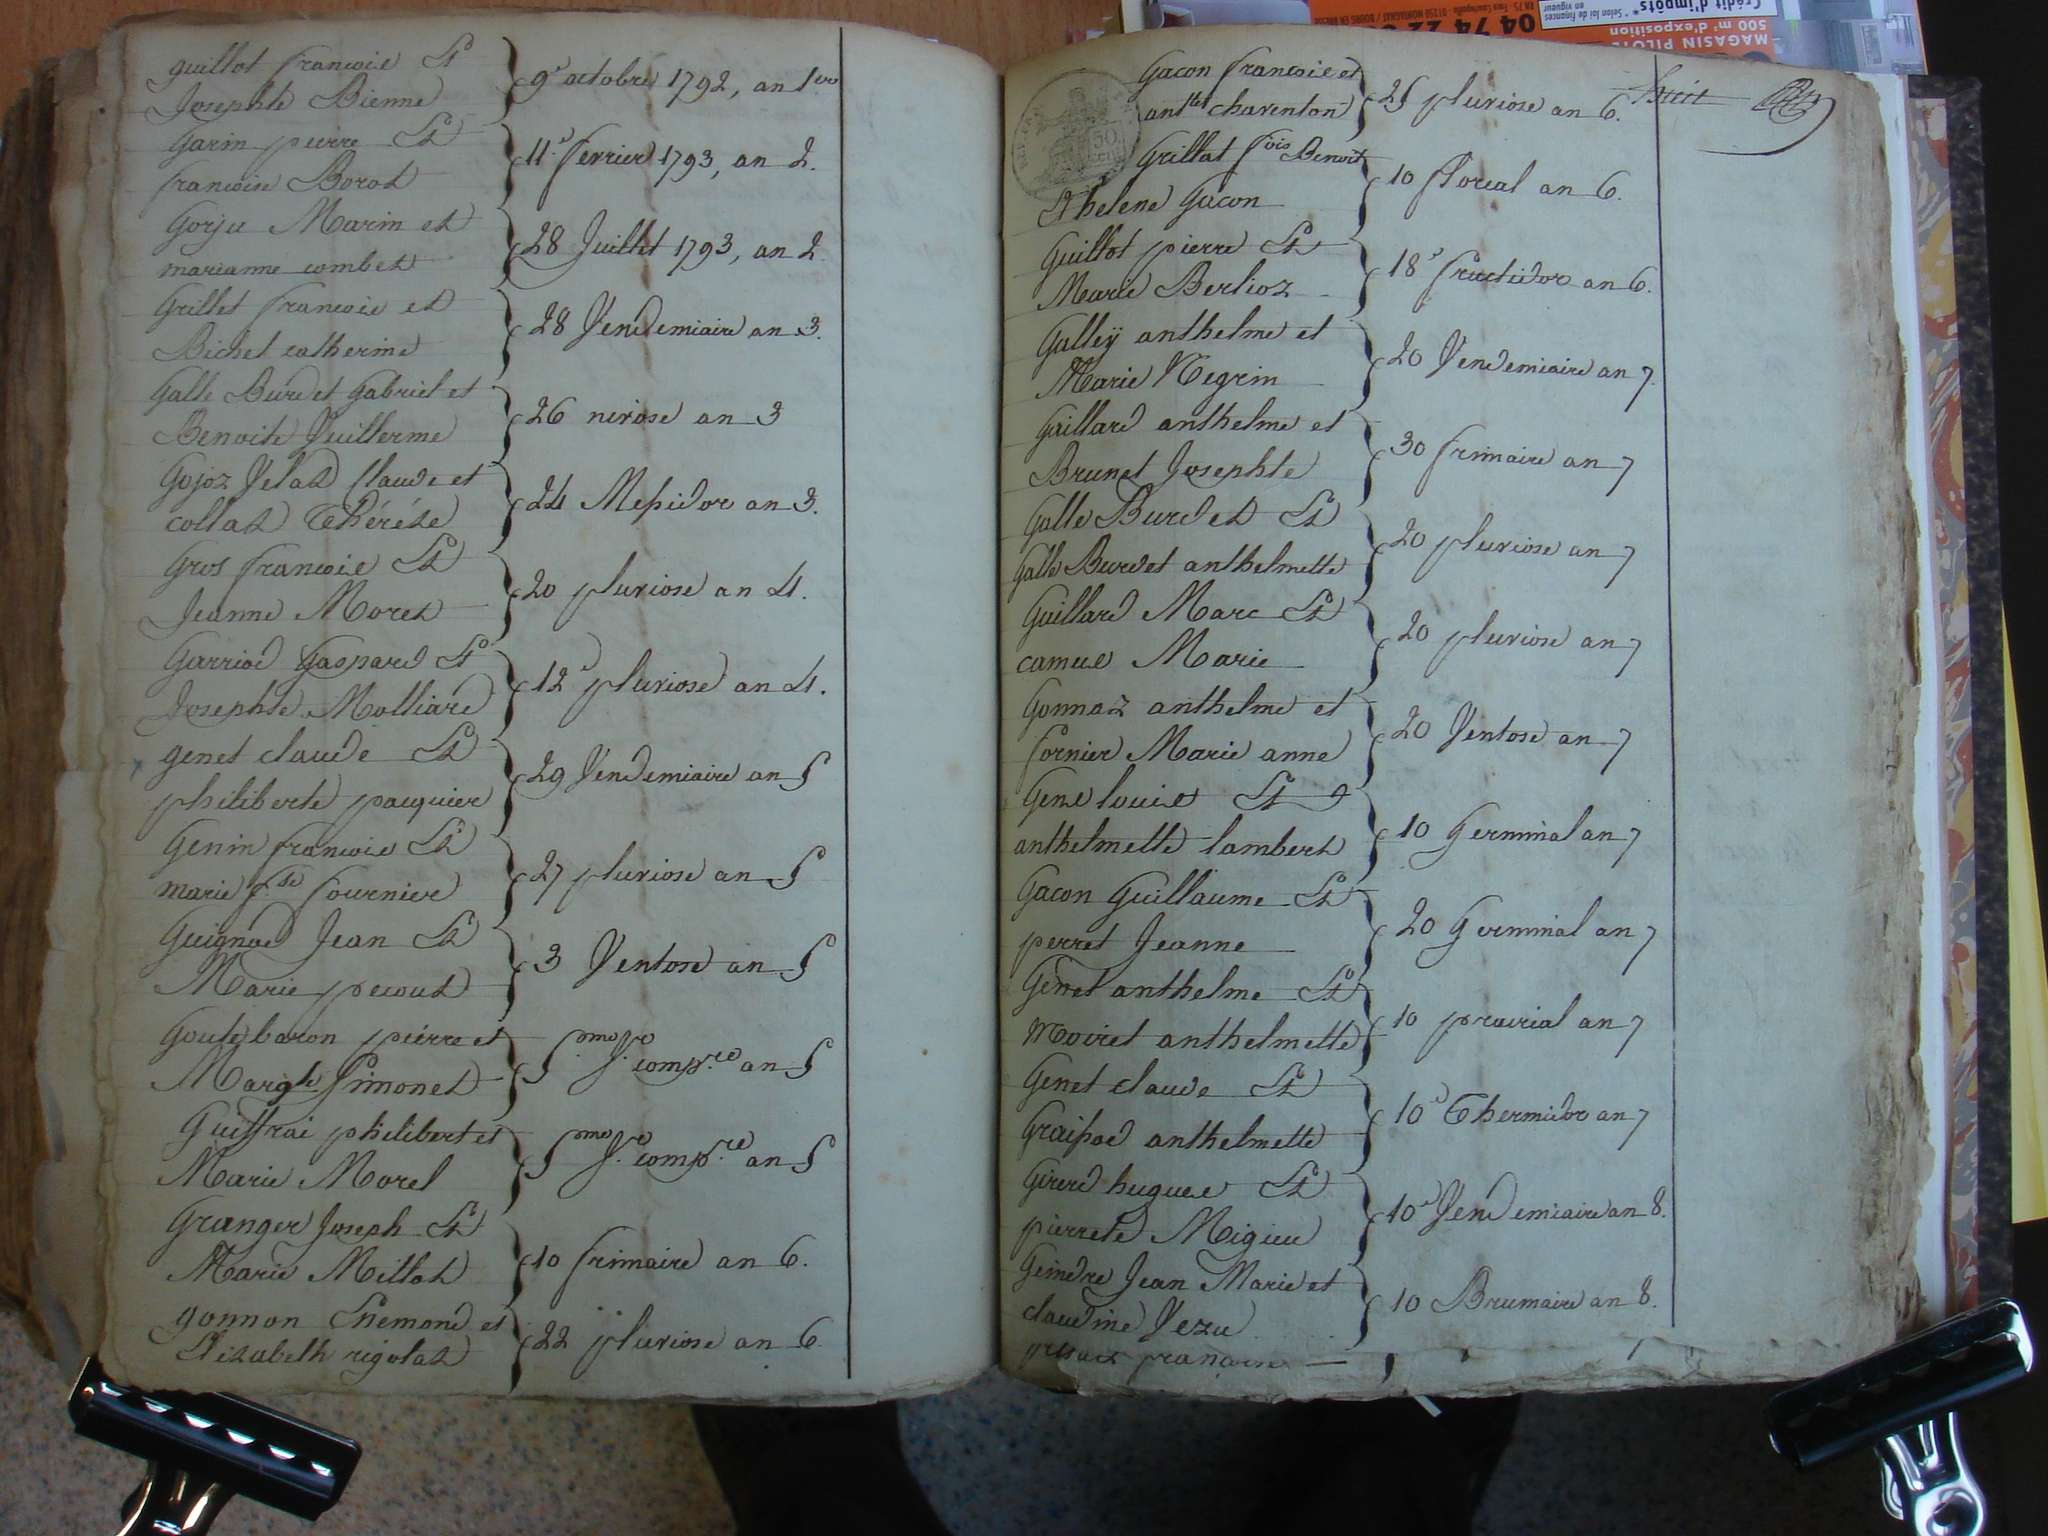 guillot francois Et
Josephte Bienne
9e octobre 1792, an 1er
Garin pierre Et
francoise Borot
11e fevrier 1793, an 2.
Gorju Marin et
marianne combet
28 Juillet 1793, an 2.
Grillet francois et
Bichet catherine
28 Vendemiaire an 3.
Galle Burdet Gabriel et
Benoite Vuillerme
26 nivose an 3
Gojoz Velat Claude et
collat Thérése
24 Messidor an 3.
Gros francois Et
Jeanne Moret
20 pluviose an 4.
Garriod Gaspard Et
Josephte Molliard
12e pluviose an 4.
genet claude Et
philiberte pacquier
29 Vendemiaire an 5
Genin francois Et
marie fse fournier
27 pluviose an 5
Guignod Jean Et
Marie pecout
3 Ventose an 5
Goutebaron pierre et
Margte Simonet
5me Jr compre an 5
Guiffrai philibert et
Marie Morel
5me Jr compre an 5
Granger Joseph Et
Marie Millot
10 frimaire an 6.
gonnon et
Elizabeth rigolat
22 pluviose an 6
Gacon francois et
antte charenton
25 pluviose an 6.
huit
Grillat fois Benoit
Et helene Gacon
10 floreal an 6.
Guillot pierre Et
Marie Berlioz
18e fructidor an 6.
Galleÿ anthelme et
Marie Negrin
20 Vendemiaire an 7.
Gaillard anthelme et
Brunet Josephte
30 frimaire an 7
Galle Burdet Et
Galle Burdet anthelmette
20 pluviose an 7
Guillard Marc Et
camus Marie
20 pluviose an 7
Gonnaz anthelme et
fornier Marie anne
20 Ventose an 7
Gene louis Et
anthelmette lambert
10 Germinal an 7
Gacon Guillaume Et
perret Jeanne
20 Germinal an 7
Genet anthelme Et
Moiret anthelmette
10 prairial an 7
Genet claude Et
Graissod anthelmette
10e Thermidor an 7
Girerd hugues Et
pierrete Migieu
10e Vendemiaire an 8.
Geindre Jean Marie et
claudine Vezu
10 Brumaire an 8.
francoise
04 74 22
MAGASIN PILOTE
500 m² d'exposition
Crédit d'impôts*
* Selon loi de finances
en vigueur